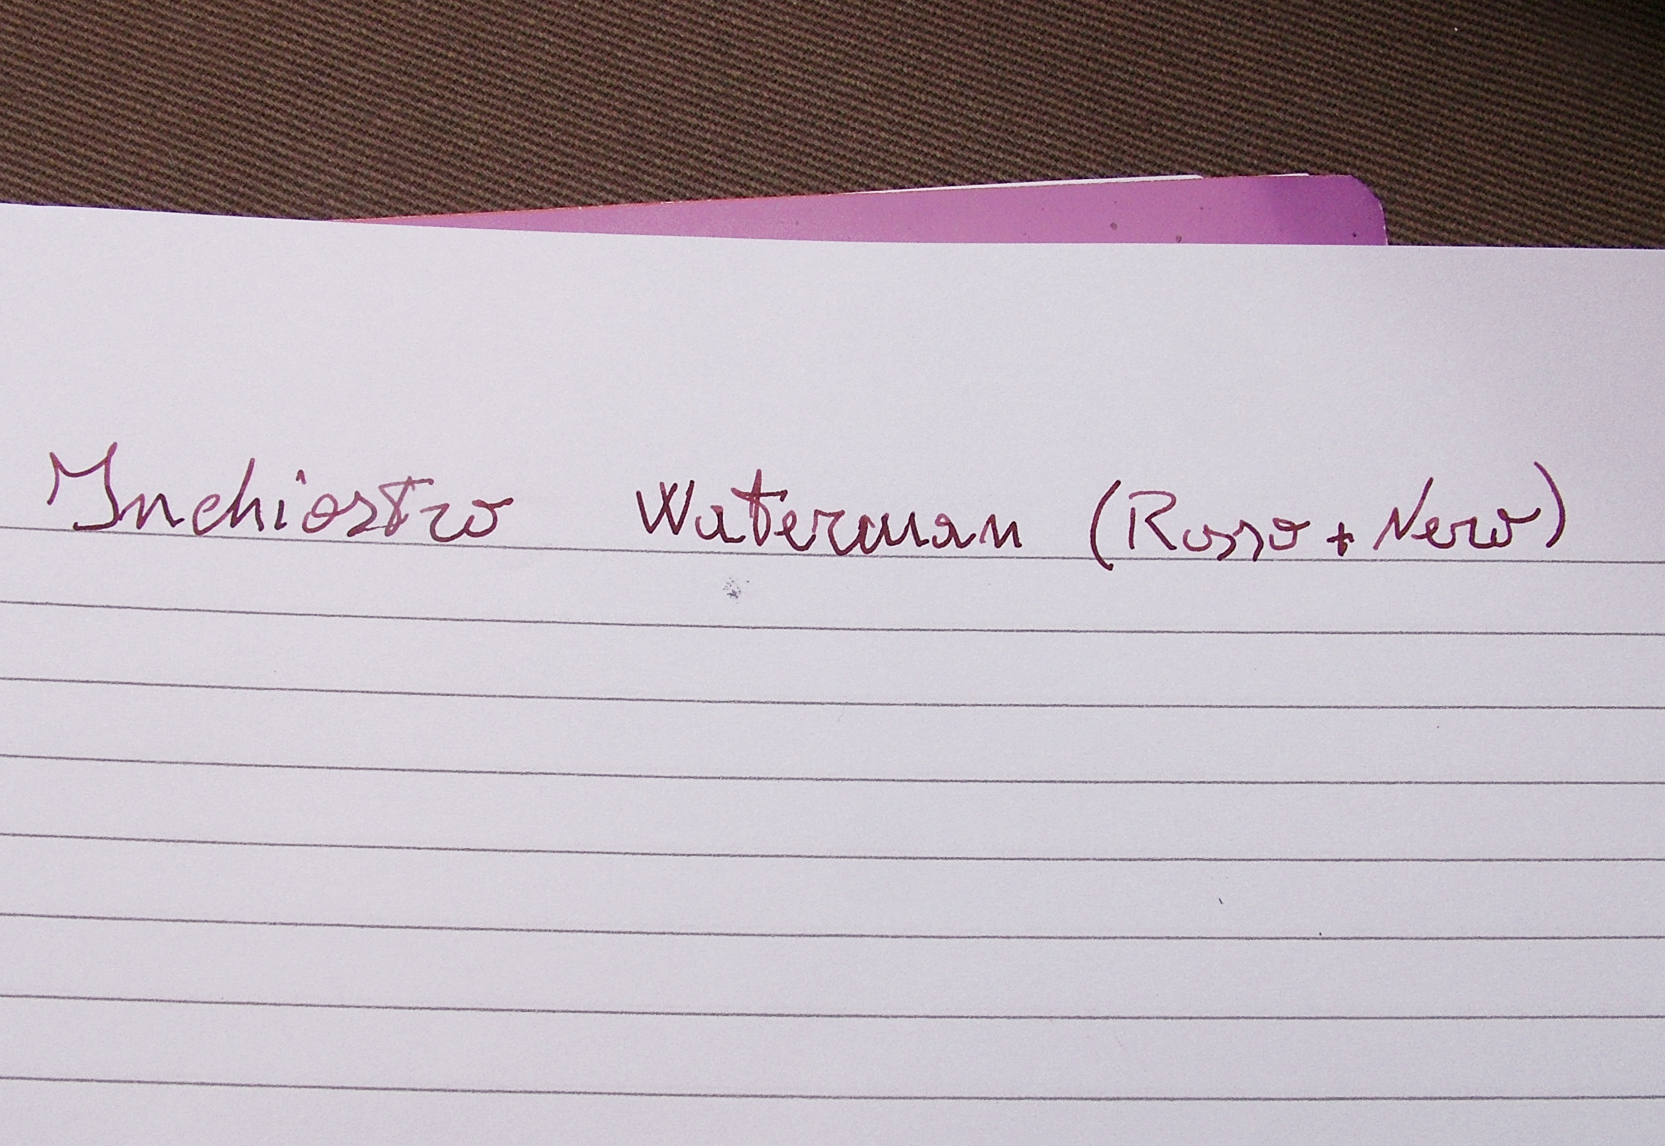 Inchiostro Waterman (Rosso + Nero)